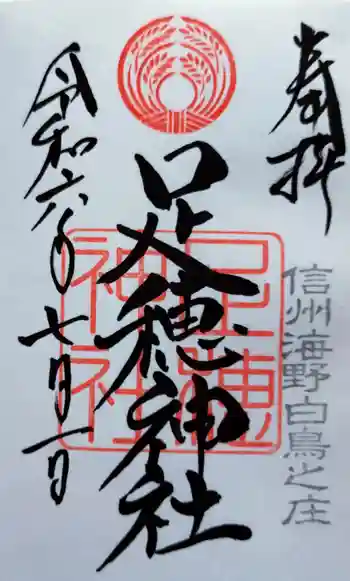 奉拝
信州海野白鳥之庄
足穂神社
足穂神社
令和六年七月一日